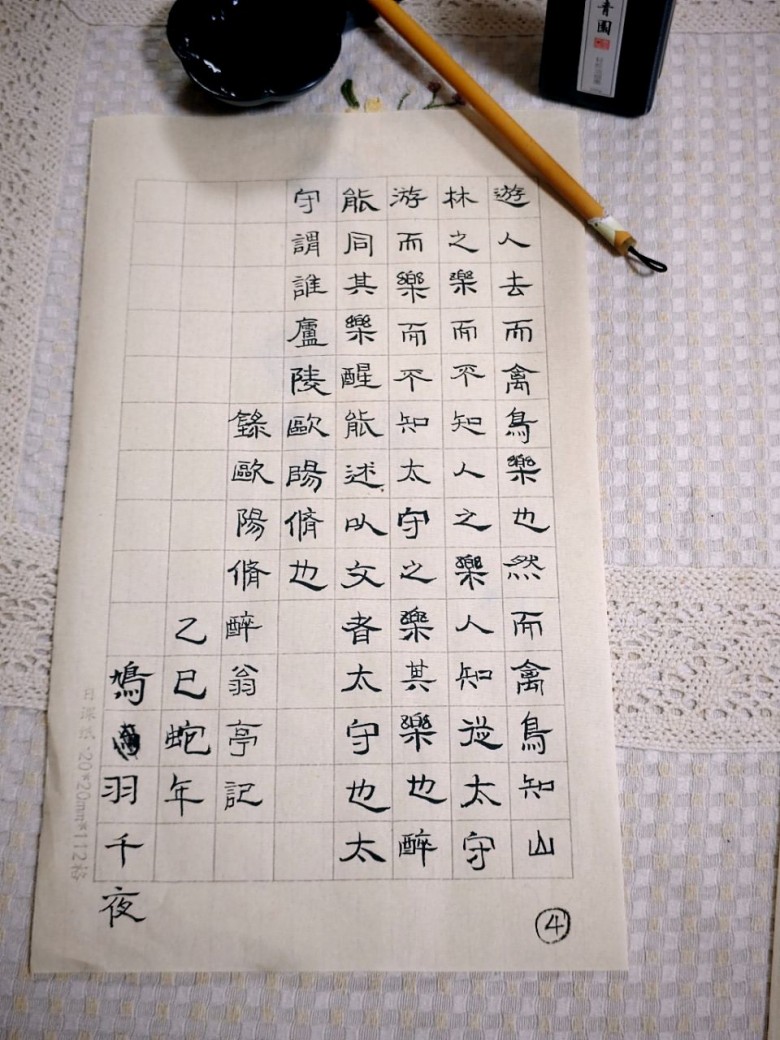 遊人去而禽鳥樂也然而禽鳥知山
林之樂而不知人之樂人知從太守
游而樂而不知太守之樂其樂也醉
能同其樂醒能述以文者太守也太
守謂誰廬陵歐陽脩也
錄歐陽脩醉翁亭記
乙巳蛇年
鳩羽千夜
④
20*20mm*112格
青園